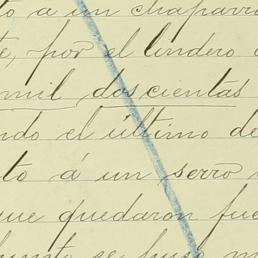 to a un chaparro
te, por el lindero
mil doscientas
ndo el último de
to á un serro
que quedaron fue
punto se puso